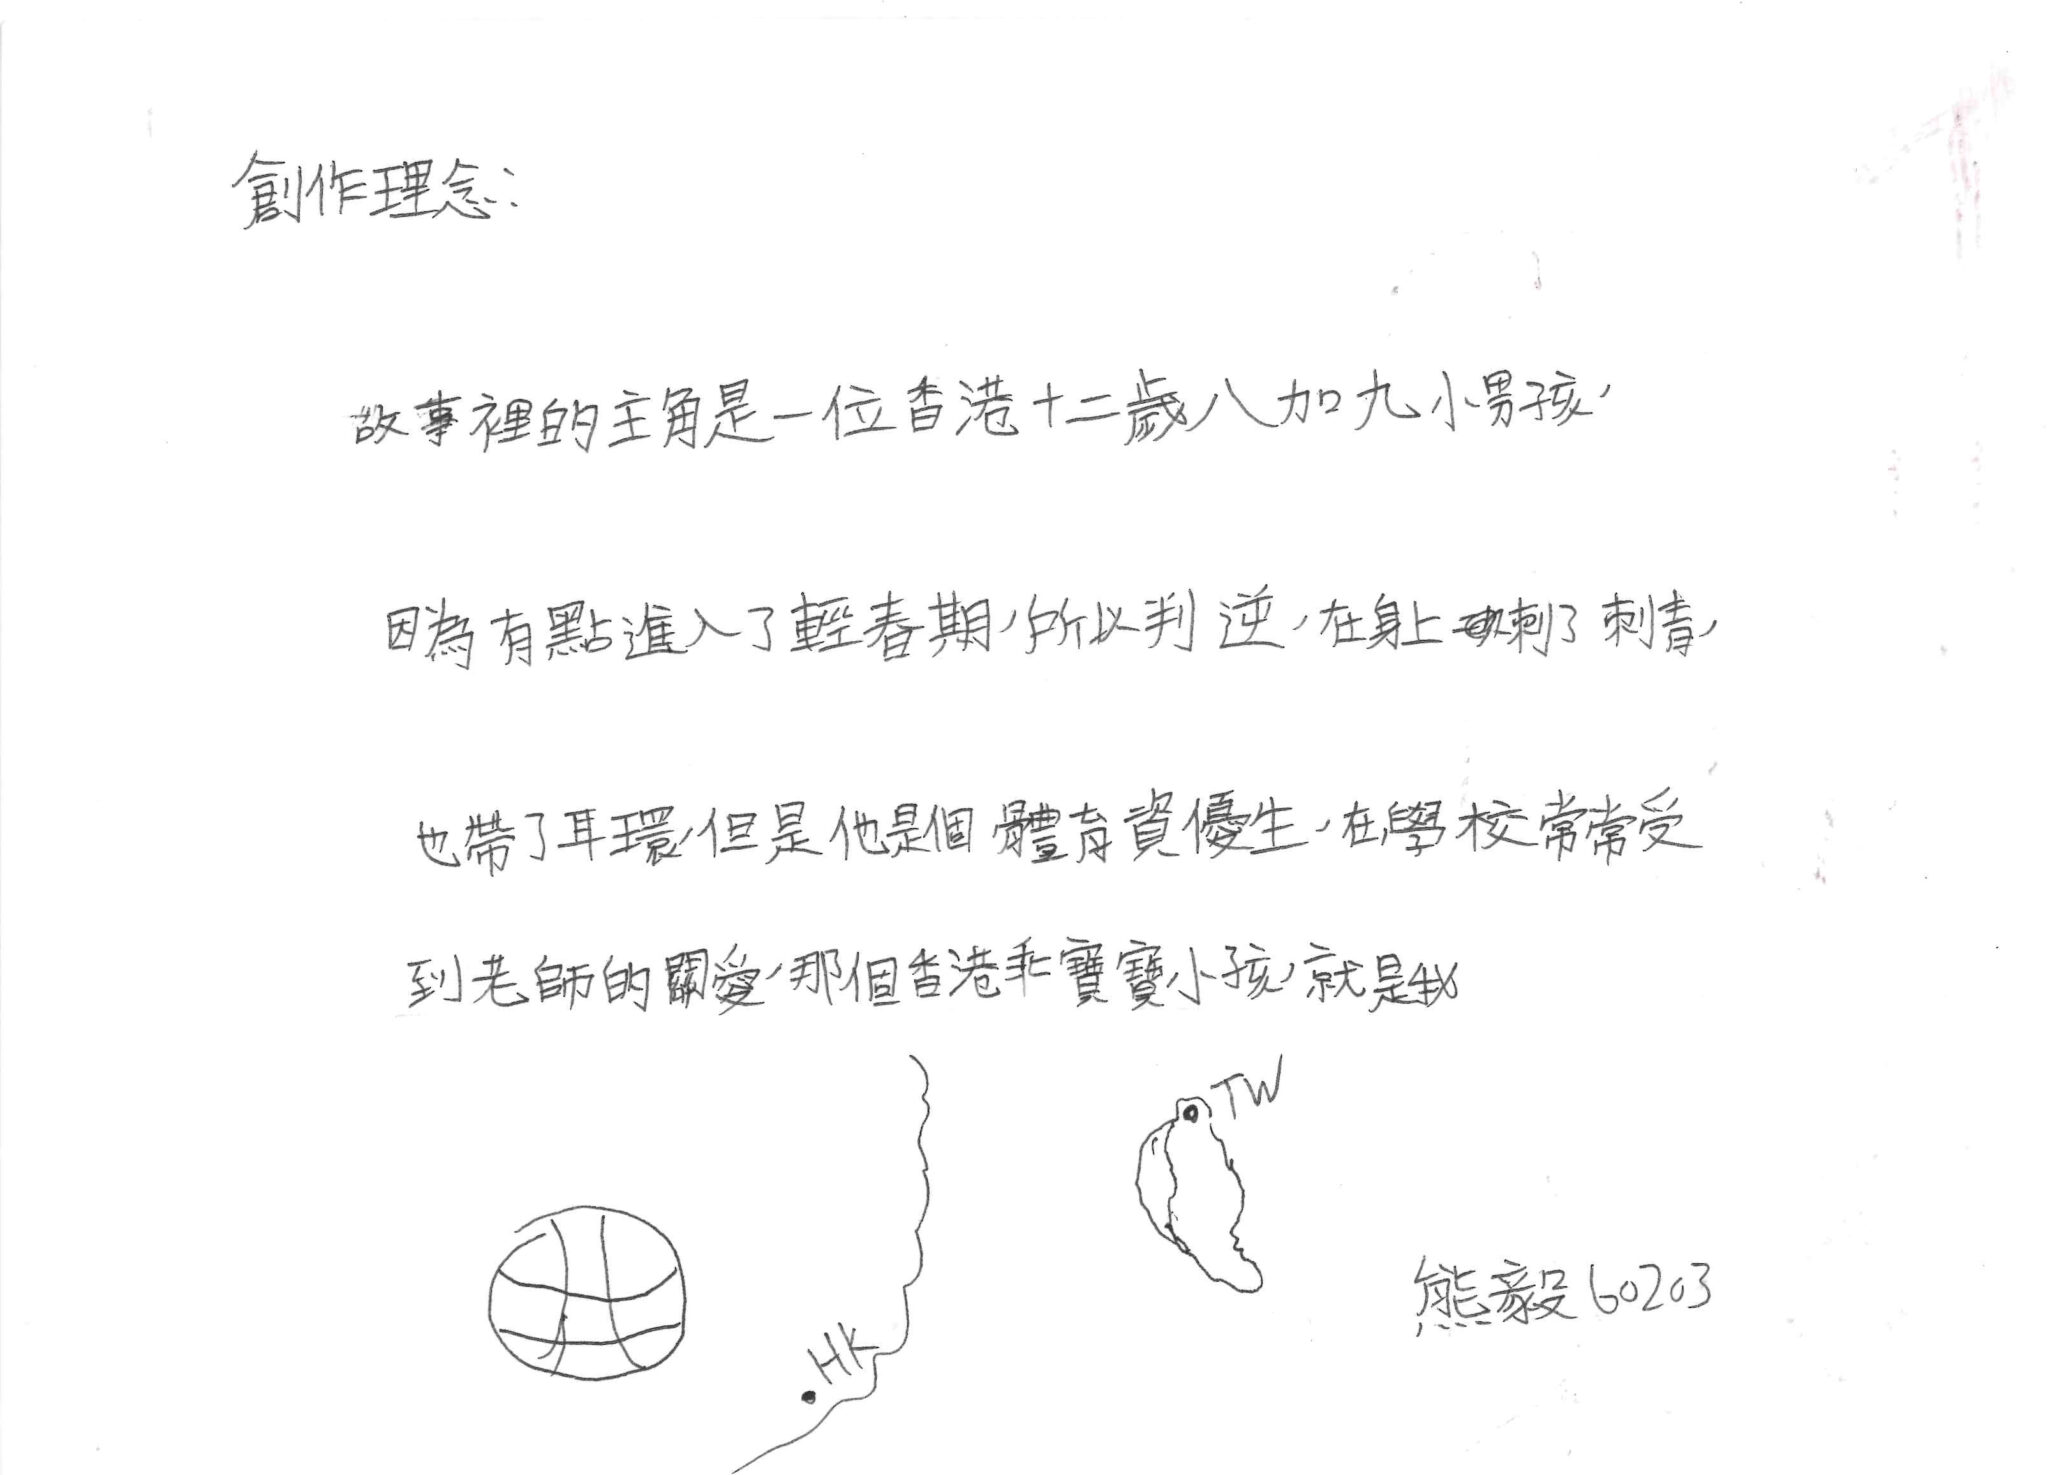 創作理念：
故事裡的主角是一位香港十二歲八加九小男孩，
因為有點進入了輕春期，所以判逆，在身上刺了刺青，
也帶了耳環，但是他是個體育資優生，在學校常常受
到老師的關愛，那個香港乖寶寶小孩，就是我
TW
HK
熊毅60203